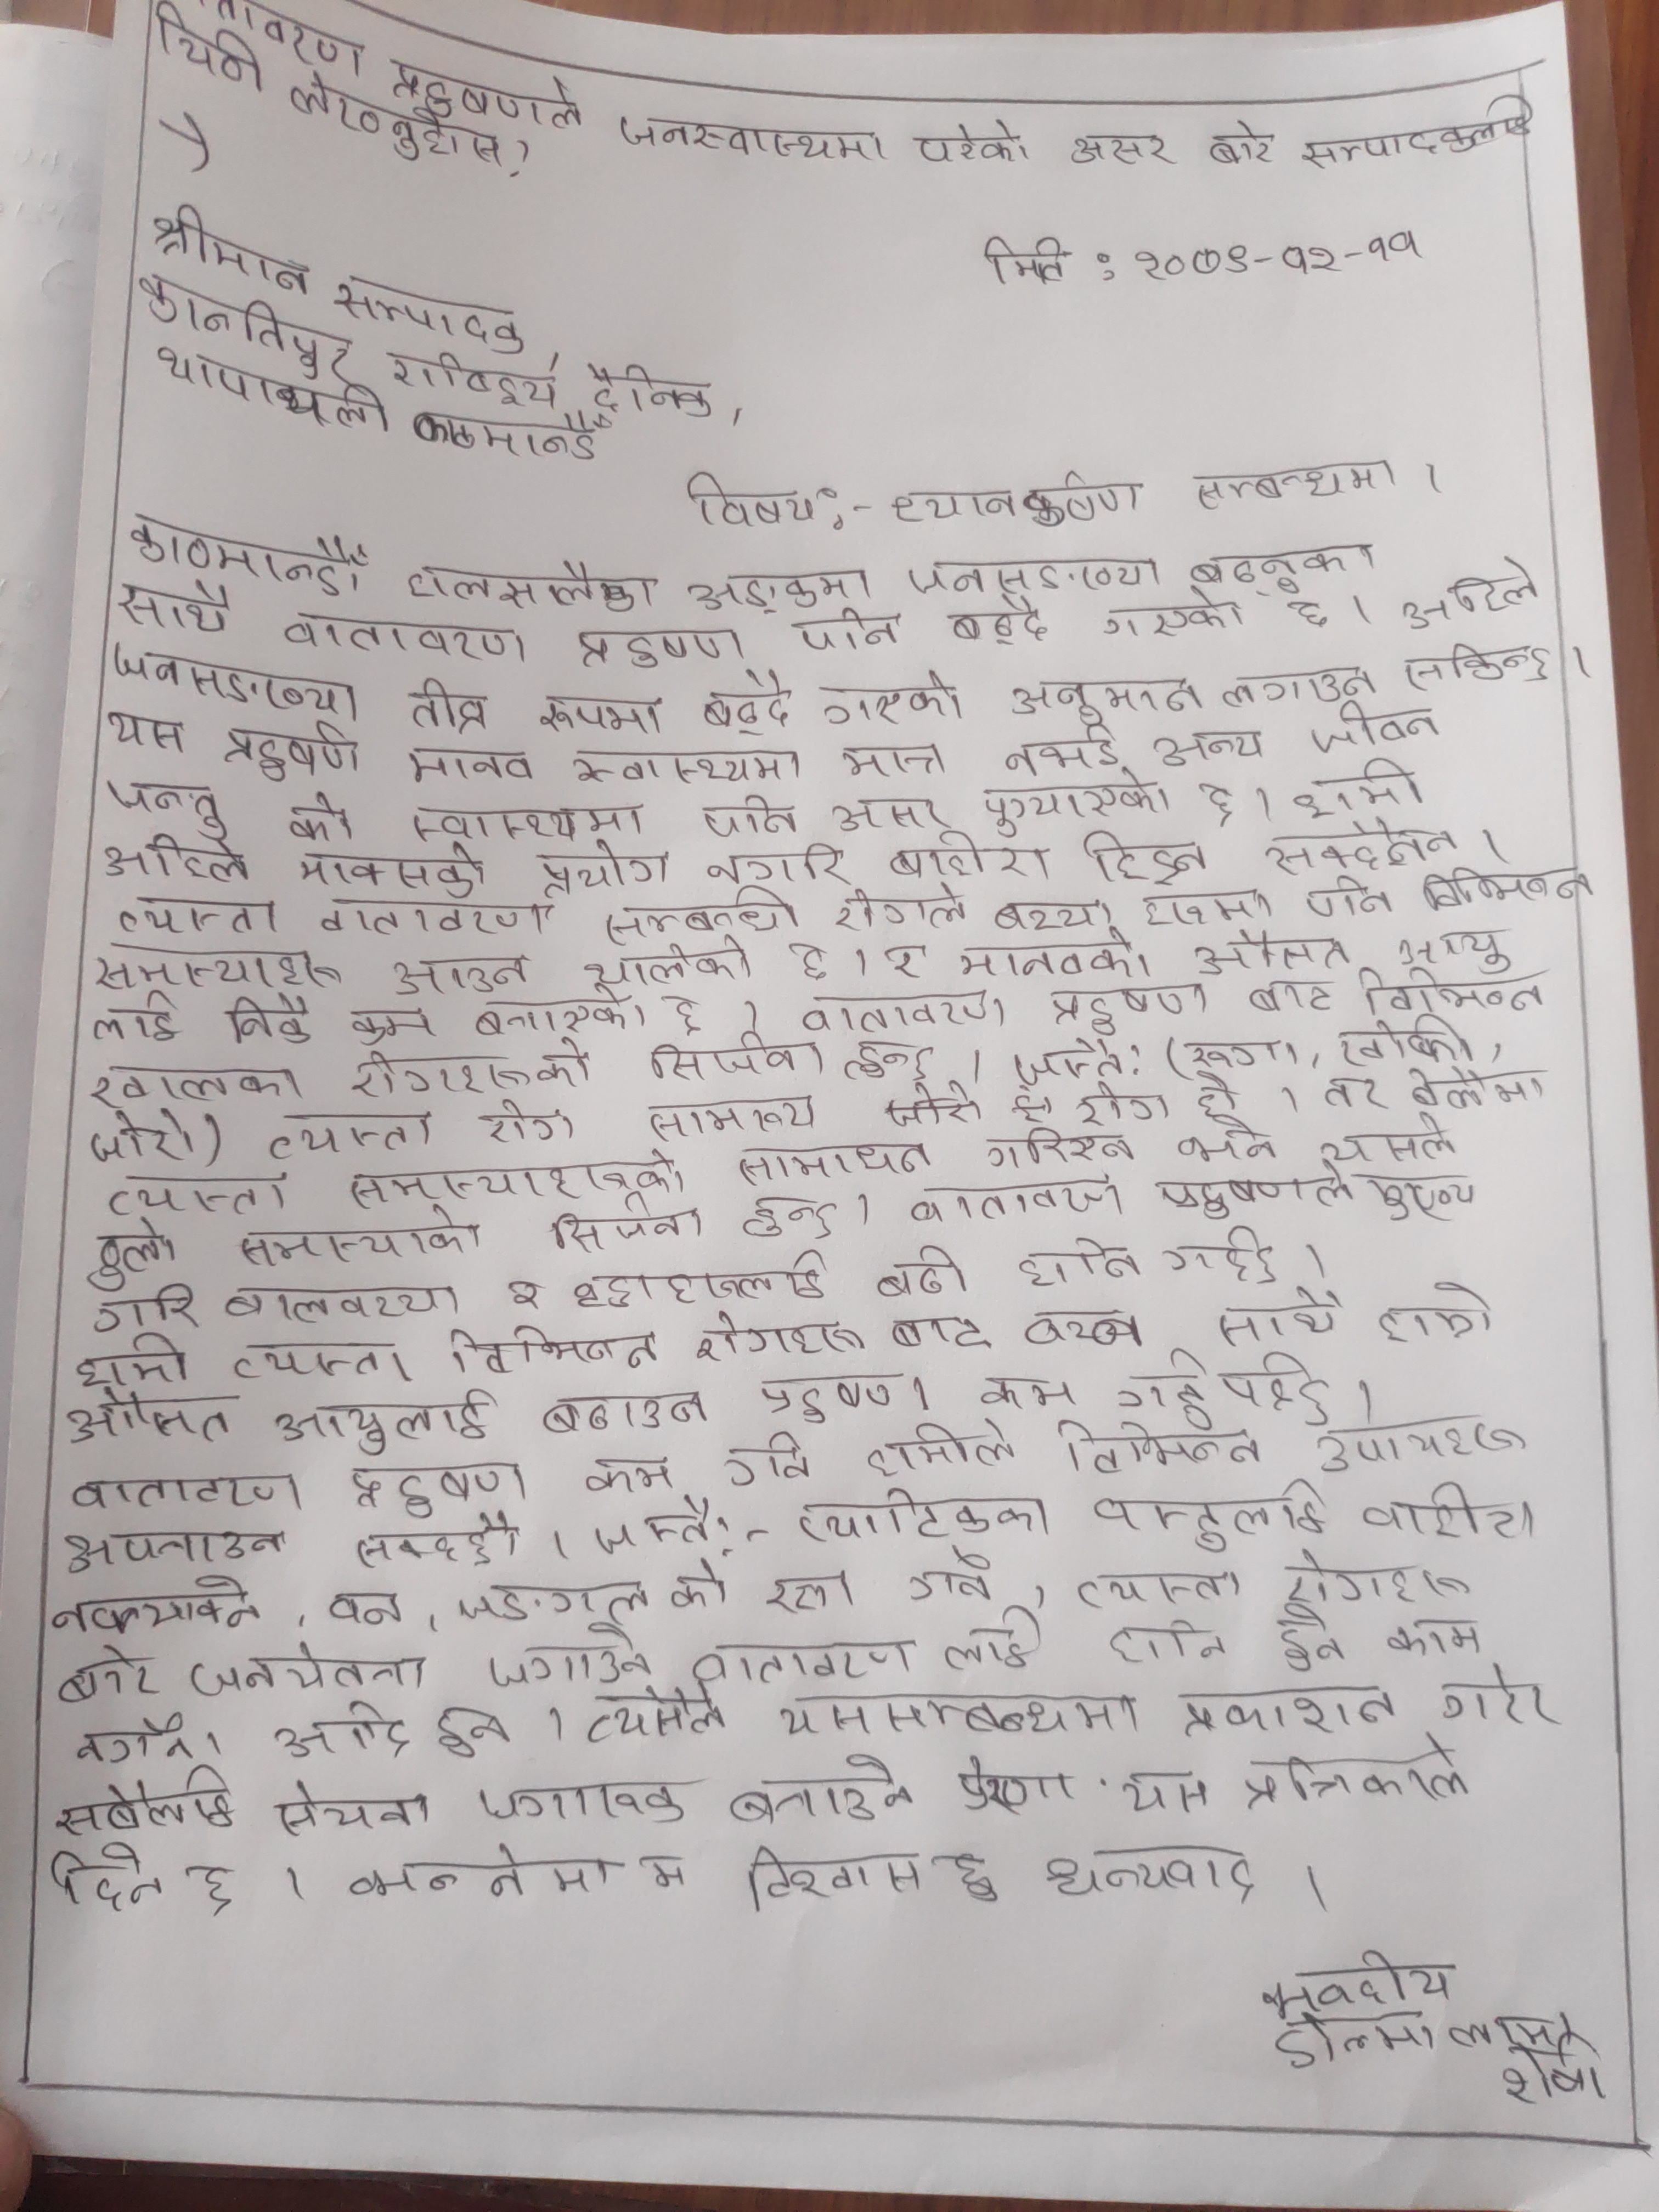 वातावरण प्रदुषणले जनस्वास्थ्यमा परेको असर बारे सम्पादकलाई
चिठी लेख्नुहोस?
श्रीमान सम्पादक,
मिति : २०७९-१२-११
कान्तिपुर राष्ट्रिय दैनिक,
थापाथली काठमान्डौं
विषय:- ध्यानकर्षण सम्बन्धमा ।
काठमान्डौं हालसालैका अङ्कमा जनसङ्ख्या बढ्नुका
साथै वातावरण प्रदुषण पनि बढ्दै गएको छ । अहिले
जनसङ्ख्या तीव्र रूपमा बढ्दै गएको अनुमान लगाउन सकिन्छ ।
यस प्रदुषण मानव स्वास्थ्यमा मात्र नभई अन्य जीवन
जन्तु को स्वास्थ्यमा पनि असर पुर्‍याएको छ । हामी
अहिले माक्सको प्रयोग नगरि बाहीरा हिड्न सक्दैनन ।
त्यास्ता वातावरण सम्बन्धी रोगले बच्चा हरुमा पनि विभिन्न
समास्याहरू आउन थालेको छ । र मानवको औसत आयु
लाई निकै कम बनाएको छ । वातावरण प्रदुषण बाट विभिन्न
खालका रोगहरूको सिर्जना हुन्छ । जास्तै: (रूगा, खोकी,
जोरो) त्यास्ता रोग सामान्य रोग हो । तर बेलैमा
त्यास्ता समास्याहरूको सामाधन गरिएन भने यसले
ठुलो समास्याको सिर्जना हुन्छ । वातावरण प्रदुषणले मुख्य
गरि बालबच्चा र बृद्धाहरूलाई बढी हानि गर्दछ ।
हामी त्यास्ता विभिन्न रोगहरू बाट बच्न साथै हाम्रो
औसत आयुलाई बढाउन प्रदुषण कम गर्नु पर्दछ ।
वातावरण प्रदुषण कम गर्न हामीले विभिन्न उपायहरू
अपनाउन सक्दछौ । जस्तै:- प्लाटिकका वस्तुलाई बाहीरा
नफ्याक्ने, वन, जङ्गल को रक्षा गर्ने, त्यास्ता रोगहरू
बारे जनचेतना जगाउने वातावरण लाई हानि हुने काम
नगर्ने । आदि हुन । त्यसैले यससम्बन्धमा प्रकाशन गरेर
सबैलाई सेचना जगारुक बनाउने प्रेरणा यस पत्रिकाले
दिने छ । भन्नेमा म विश्वास छु धन्यवाद ।
भवदीय
डोल्मा लामा
शेर्पा